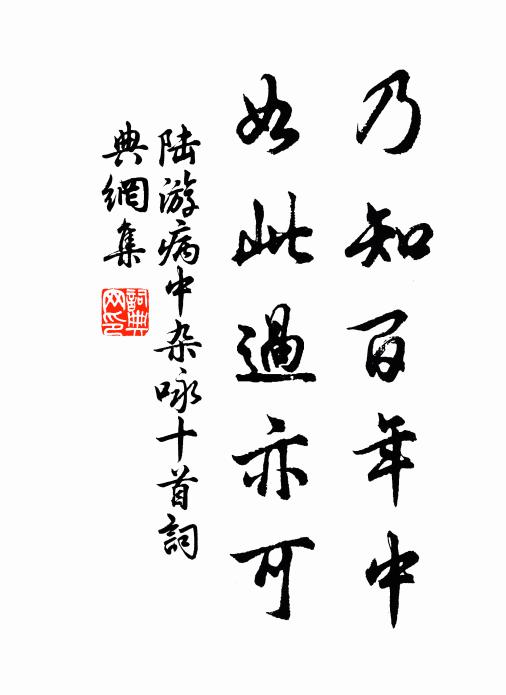 乃知百年中
如此過亦可
陆游病中杂咏十首詞
典網集
詞典网印